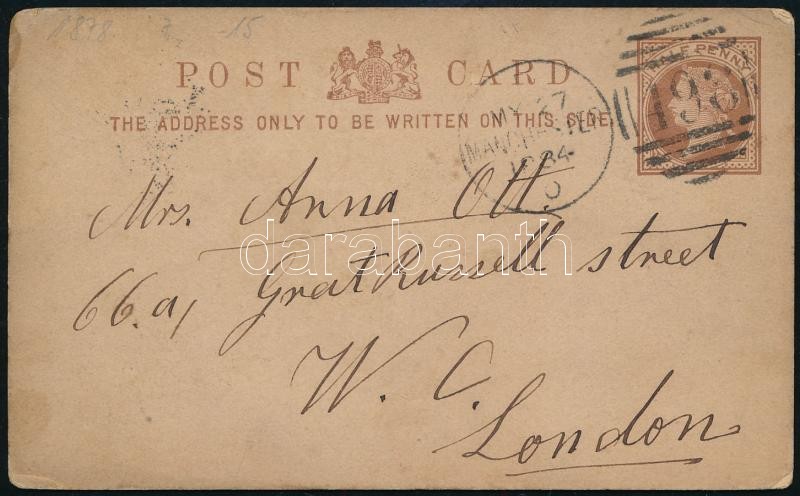 1878 -15
POST CARD
HALF PENNY
THE ADDRESS ONLY TO BE WRITTEN ON THIS SIDE.
498
MY 27
MANCHESTER
1884
Mrs. Anna Ott
darabanth
66.a, Grat Russell street
W. C.
London